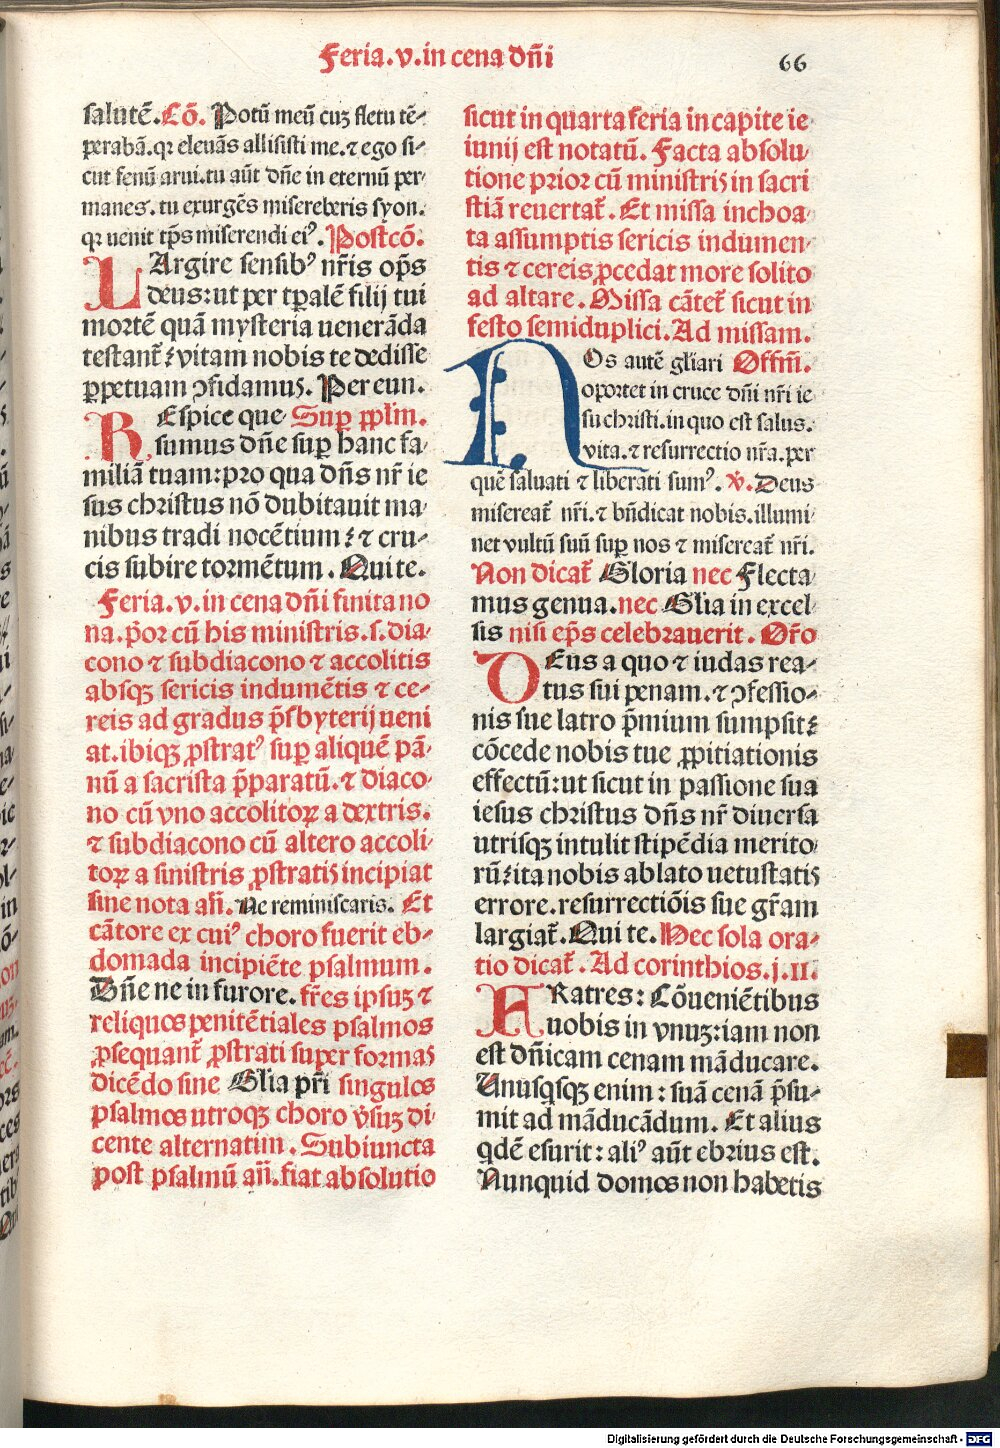 Feria.v.in cena dñi
66
salutē.Cō. Potū meū cuꝫ fletu tē-
perabā.qꝛ eleuās allisisti me.⁊ ego si-
cut fenū arui.tu aūt dñe in eternū per-
manes.tu exurgēs misereberis syon.
qꝛ uenit tp̄s miserendi eiꝰ. Postcō.
LArgire sensibꝰ nr̄is op̄s
deus:ut per tꝑalē filij tui
mortē quā mysteria uenerāda
testant̄:vitam nobis te dedisse
ꝑpetuam ꝯfidamuꝫ. Per eun.
REspice que- Suꝑ pp̄lm.
sumus dñe suꝑ hanc fa-
miliā tuam:pro qua dñs nr̄ ie
sus christus nō dubitauit ma-
nibus tradi nocētium:⁊ cru-
cis subire tormētum. Qui te.
Feria.v.in cena dñi finita no
na.p̄or cū his ministris.s.dia-
cono ⁊ subdiacono ⁊ accolitis
absqꝫ sericis indumētis ⁊ ce-
reis ad gradus p̄sbyterij ueni
at.ibiqꝫ ꝓstratꝰ suꝑ aliquē pā-
nū a sacrista p̄paratū.⁊ diaco-
no cū vno accolitoꝝ a dextris.
⁊ subdiacono cū altero accoli-
toꝝ a sinistris ꝓstratis incipiat
sine nota añ. Ne reminiscaris. Et
cātore ex cuiꝰ choro fuerit eb-
domada incipiēte psalmum.
Dñe ne in furore. fr̄es ipsuꝫ ⁊
reliquos penitētiales psalmos
ꝓsequant̄ ꝓstrati super formas
dicēdo sine Glia pr̄i singulos
psalmos utroqꝫ choro v̄suꝫ di-
cente alternatim. Subiuncta
post psalmū añ.fiat absolutio
sicut in quarta feria in capite ie-
iunij est notatū. Facta absolu-
tione prior cū ministris in sacri
stiā reuertat̄. Et missa inchoa-
ta assumptis sericis indumen-
tis ⁊ cereis ꝓcedat more solito
ad altare. Missa cātet̄ sicut in
festo semiduplici. Ad missam.
NOs autē gl̄iari Offm̄.
oportet in cruce dñi nr̄i ie
su christi.in quo est salus.
vita.⁊ resurrectio nr̄a.per
quē saluati ⁊ liberati sumꝰ. ℣. Deus
misereat̄ nr̄i.⁊ bn̄dicat nobis.illumi-
net vultū suū suꝑ nos ⁊ misereat̄ nr̄i.
Non dicat̄ Gloria nec Flecta
mus genua.nec Glia in excel-
sis nisi ep̄s celebrauerit. Or̄o
DEus a quo ⁊ iudas rea-
tus sui penam.⁊ ꝯfessio-
nis sue latro p̄mium sumpsit:
cōcede nobis tue ꝓpitiationis
effectū:ut sicut in passione sua
iesus christus dñs nr̄ diuersa
utrisqꝫ intulit stipēdia merito-
rū:ita nobis ablato uetustatis
errore.resurrectiōis sue gr̄am
largiat̄. Qui te. Hec sola ora-
tio dicat̄. Ad corinthios.j.II.
FRatres: Cōueniētibus
uobis in vnuꝫ:iam non
est dñicam cenam māducare.
Unusqsqꝫ enim: suā cenā p̄su-
mit ad māducādum. Et alius
qdē esurit: aliꝰ aūt ebrius est.
Nunquid domos non habetis
Digitalisierung gefördert durch die Deutsche Forschungsgemeinschaft - DFG